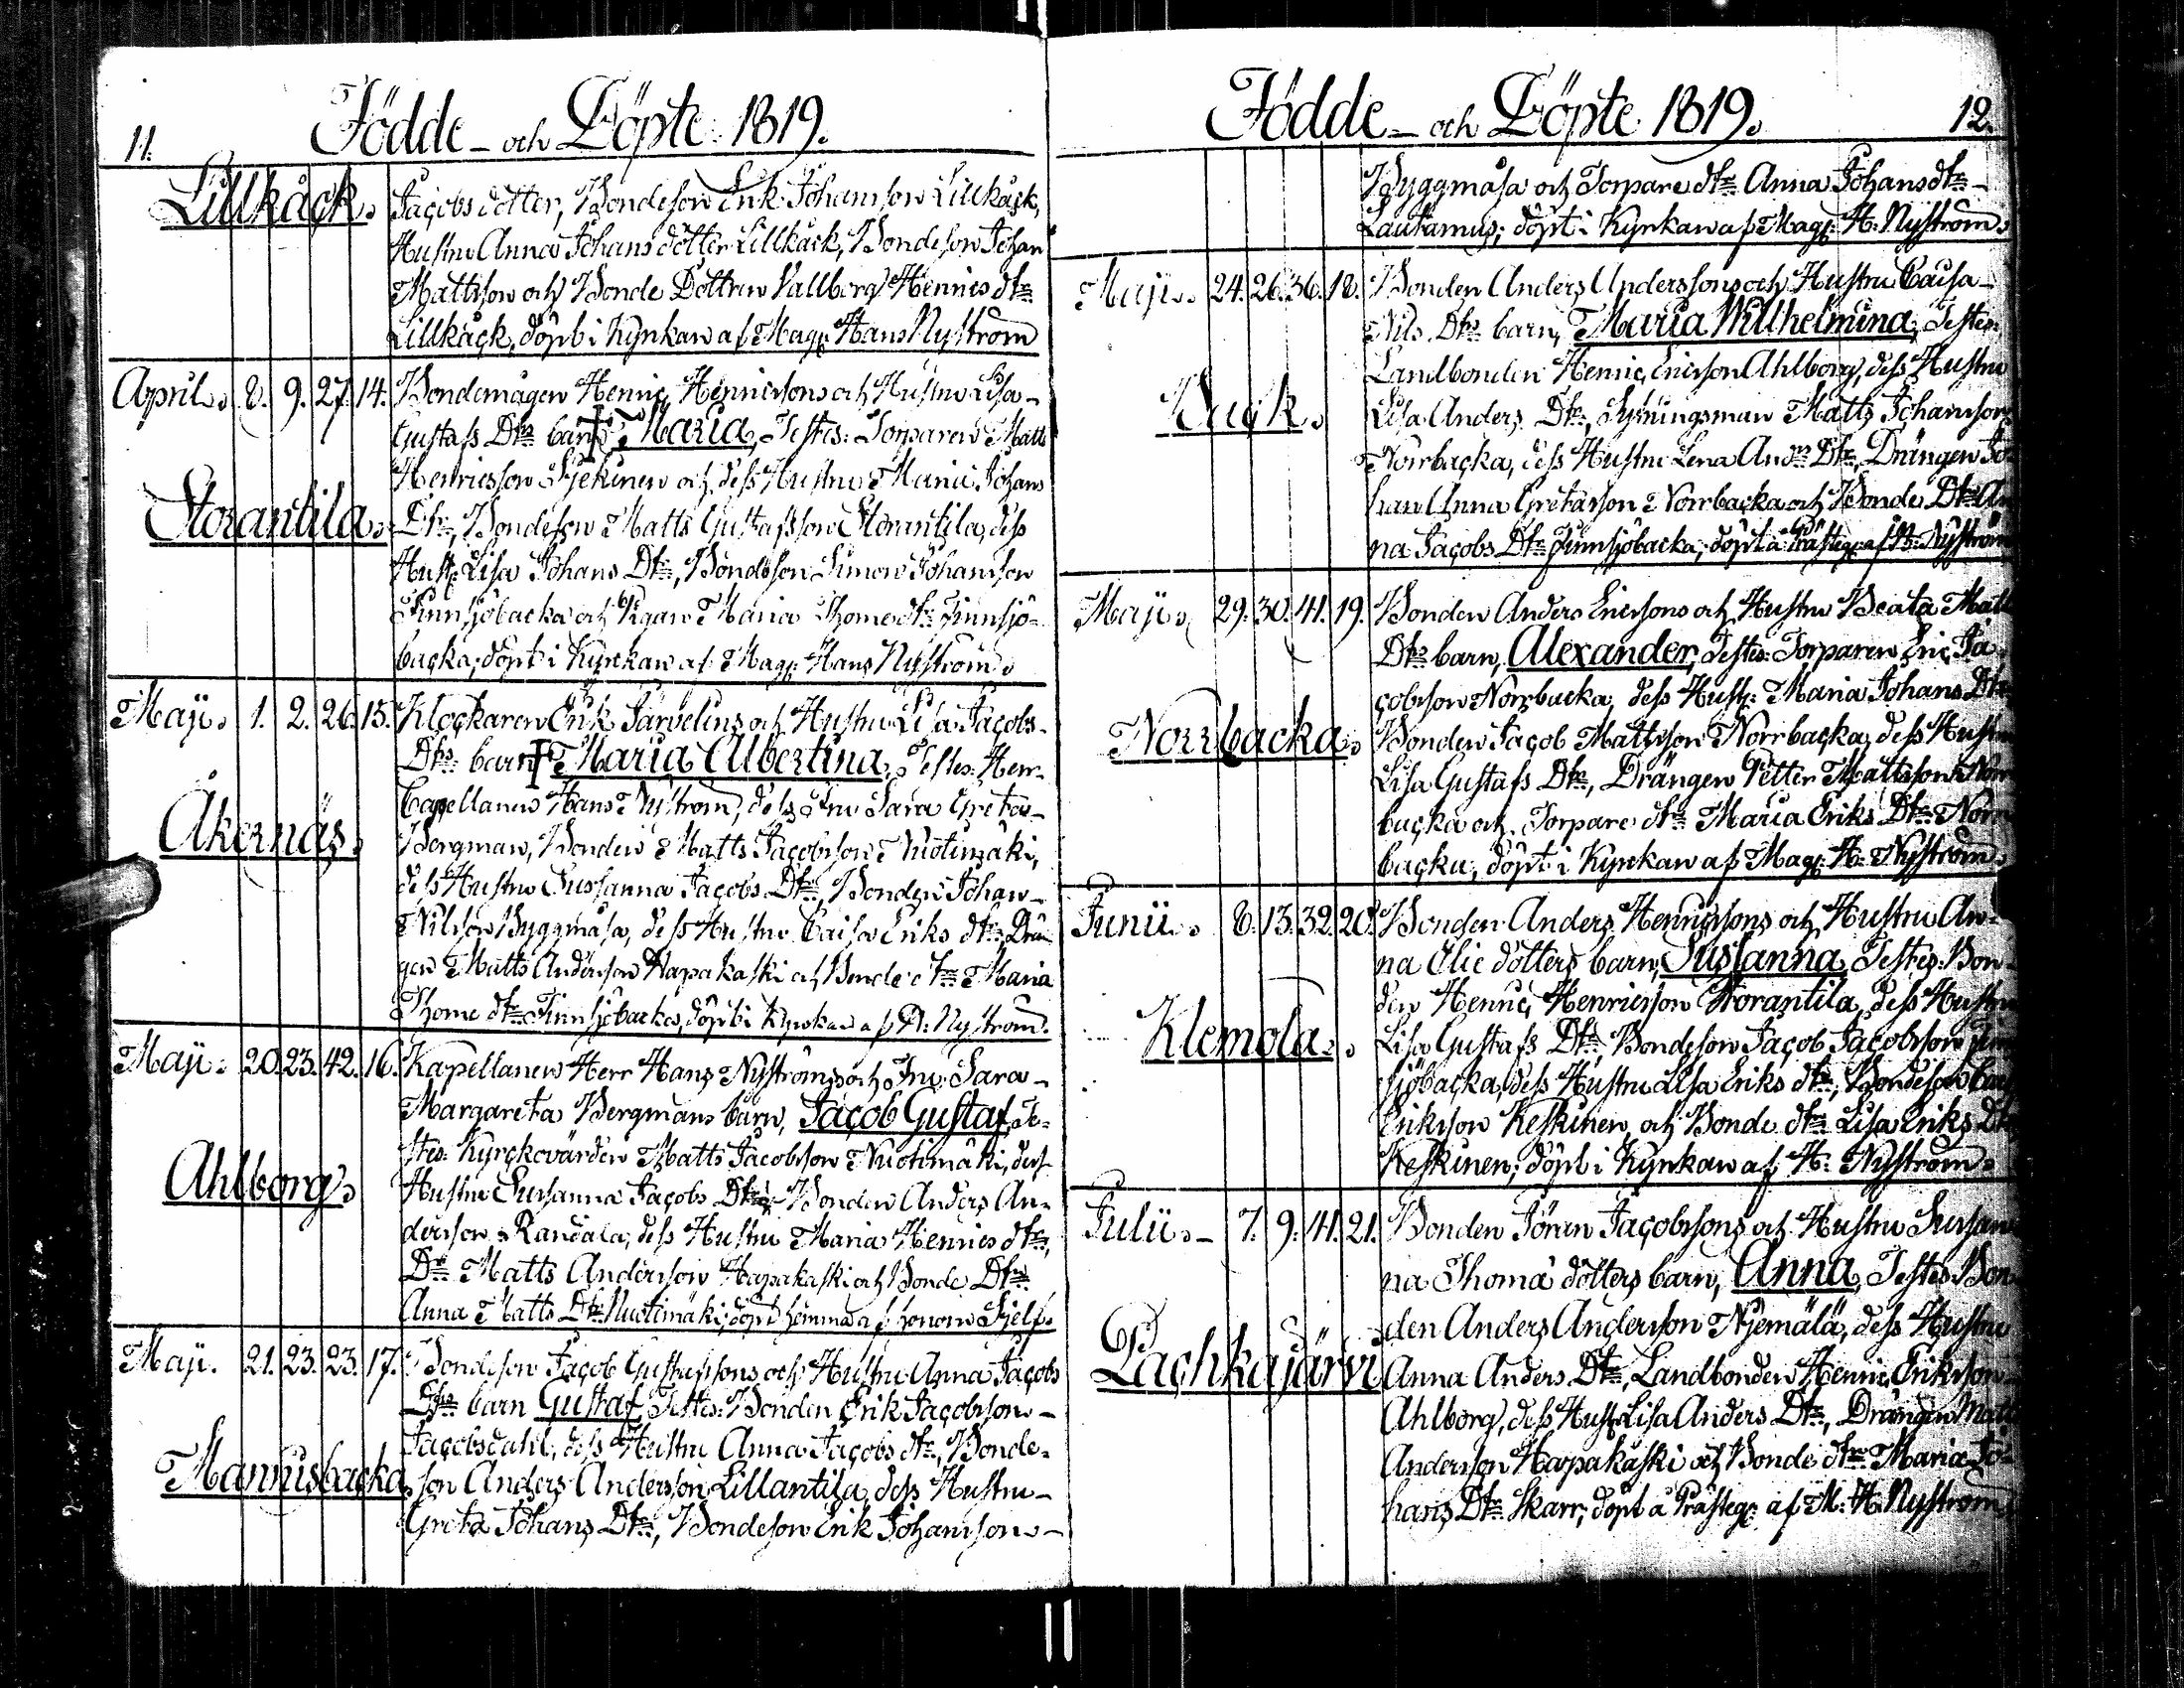 11.
Födde – och Döpte 1819.
Lillkåck.
Jacobs dotter, Bondeson Erik Johansson Lillkåck,
Hustru Anna Johans dotter Lillkåck, Bondeson Johan
Mattsson och Bonde Dottren Vallborg Henrics dtr
Lillkåck, döpt i Kyrkan af Mag: Hans Nyström
April. 8. 9. 27. 14. Bondemågen Henric Henricssons och Hustru Lisa
Gustafs Dtrs barn † Maria, Testes: Torparen Matts
Henricsson och dess Hustru Maria Johans
Storantila.
Dtr, Bondeson Matts Gustafsson Storantila, dess
Hust: Lisa Johans Dtr, Bondeson Simon Johansson
Finnsjöbacka och Pigan Maria Thome dtr Finnsjö-
backa; döpt i Kyrkan af Mag: Hans Nyström.
Maji. 1. 2. 26. 15. Klockaren Erik Särvelins och Hustru Lisa Jacobs
Dtrs barn † Maria Albertina, Testes: Herr
Capellanen Hans Nyström, dess Fru Sara Greta
Åkernäs.
Bergman, Bonden Matts Jacobsson Nuotimäki,
dess Hustru Sussanna Jacobs Dtr, Bonden Johan
Nilsson Byggmäsa, dess Hustru Caisa Eriks dtr, Drän
gen Matts Andersson Hapakaski och Bonde dtr Maria
Thome dtr Finnsjöbacka, döpt i Kyrkan af H: Nyström.
Maji. 20. 23. 42. 16. Kapellanen Herr Hans Nyströms och Fru Sara
Margareta Bergmans barn, Jacob Gustaf, Te-
stes: Kyrckovärden Matts Jacobsson Nuotimäki, dess
Ahlborg.
Hustru Sussanna Jacobs Dtr, Bonden Anders An-
dersson Randala, dess Hustru Maria Henrics dtr,
Dr Matts Andersson Hapakaski och Bonde Dtr
Anna Matts Dtr Nuotimäki; döpt hemma af honom Sjelf.
Maji. 21. 23. 23. 17. Bondeson Jacob Gustafssons och Hustru Anna Jacobs
Dtrs barn Gustaf, Testes: Bonden Erik Jacobsson
Jacobsdahl, dess Hustru Anna Jacobs dtr, Bonde-
Mannisbacka.
son Anders Andersson Lillantila, dess Hustru
Greta Johans Dtr, Bondeson Erik Johansson
Födde – och Döpte 1819.
12.
Byggmäsa och Torpare dtr Anna Johans dtr
Lautamus; döpt i Kyrkan af Mag: H: Nyström.
Maji. 24. 26. 36. 18. Bonden Anders Anderssons och Hustru Caisa
Nils Dtrs barn, Maria Willhelmina, Testes:
Landbonden Henric Ericsson Ahlborg, dess Hustru
Lisa Anders Dtr, Matts Johansson
Norrbacka, dess Hustru Lena Andrs Dtr, Drängen Jo-
han Anna Gretasson Norrbacka och Bonde Dtr An
na Jacobs Dtr Finnsjöbacka, döpt å Prästeg: af H: Nyström
Maji. 29. 30. 41. 19. Bonden Anders Ericssons och Hustru Beata Matts
Dtrs barn, Alexander, Testes: Torparen Eric Ja
cobsson Norrbacka, dess Hust: Maria Johans Dtr
Norrbacka.
Bonden Jacob Mattsson Norrbacka, dess Hustru
Lisa Gustafs Dtr, Drängen Petter Mattsson Norr
backa och Torpare dtr Maria Eriks Dtr Norr
backa; döpt i Kyrkan af Mag: H: Nyström.
Junii. 8. 13. 32. 20. Bonden Anders Henricssons och Hustru An-
na Elie dotters barn, Sussanna, Testes: Bon-
den Henric Henricsson Storantila, dess Hustru
Klemola.
Lisa Gustafs Dtr, Bondeson Jacob Jacobsson Finn
sjöbacka, dess Hustru Lisa Eriks dtr, Bondeson
Eriksson Keskinen, och Bonde dtr Lisa Eriks Dtr
Keskinen; döpt i Kyrkan af H: Nyström.
Julii. 7. 9. 41. 21. Bonden Jören Jacobssons och Hustru Sussan
na Thoma dotters barn, Anna, Testes: Bon
den Anders Andersson Njemälä, dess Hustru
Pachkajärvi
Anna Anders Dtr, Landbonden Henric Eriksson
Ahlborg, dess Hust: Lisa Anders Dtr, Drängen Matts
Andersson Hapakaski och Bonde dtr Maria Jo-
hans Dtr Skarr; döpt å Prästeg: af M: H: Nyström,